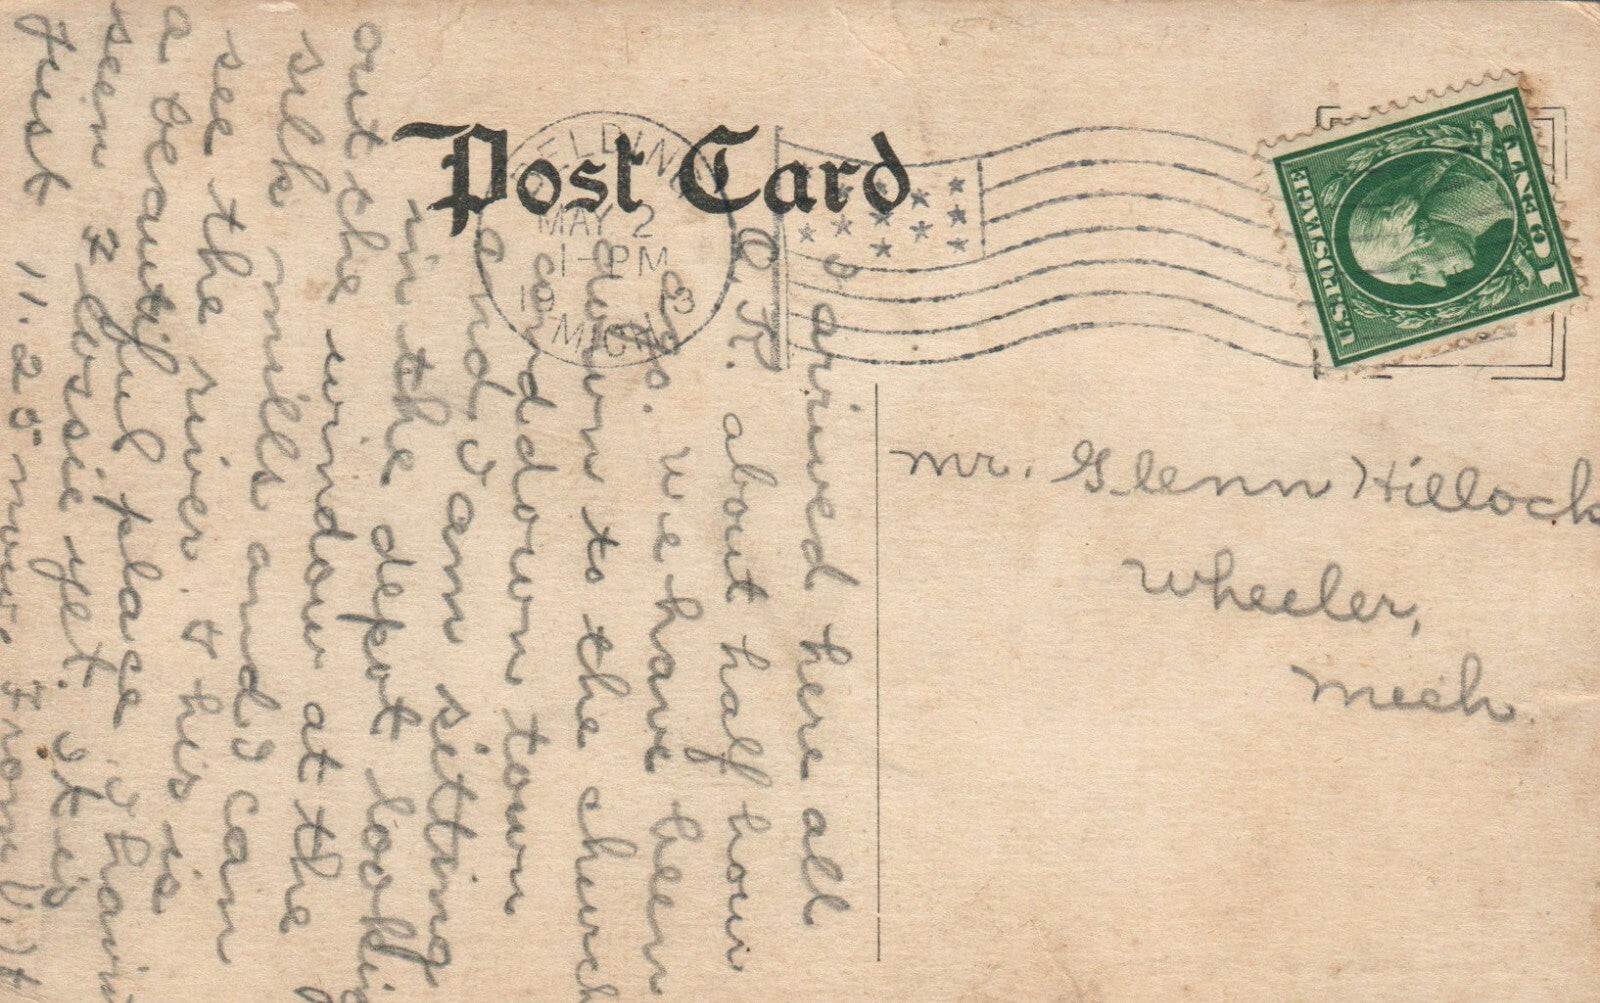 Post Card
BELDING
MAY 2
1-PM
1913
MICH.
U.S. POSTAGE
1 CENT 1
Mr. Glenn Hillock
Wheeler,
Mich.
I arrived here all
O.K. about half hour
ago. We have been
down to the church
and down town
and I am sitting
in the depot looking
out the window at the
silk mills and I can
see the river. This is
a beautiful place. I havn
seen Flossie yet. It is
just 11.25 now. From